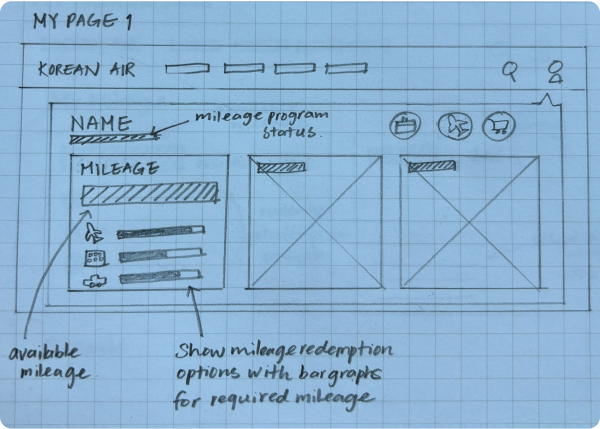 MY PAGE 1
KOREAN AIR
NAME
mileage program
status.
MILEAGE
available
mileage
Show mileage redemption
options with bargraphs
for required mileage